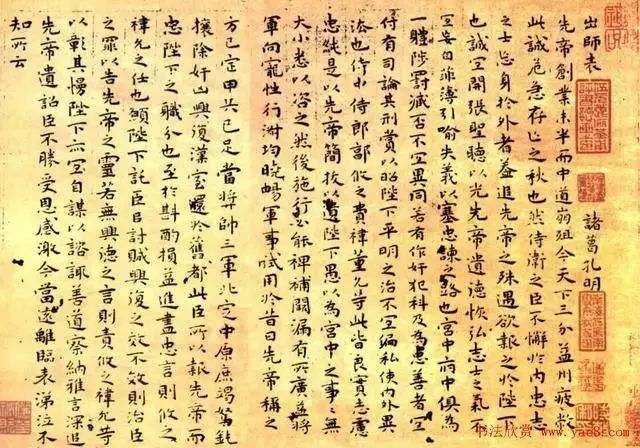 出師表 諸葛孔明
先帝創業未半而中道崩殂今天下三分益州疲弊
此誠危急存亡之秋也然侍衛之臣不懈於内忠志
之士忘身於外者蓋追先帝之殊遇欲報之於陛下
也誠宜開張聖聽以光先帝遺德恢弘志士之氣不
宜妄自菲薄引喻失義以塞忠諫之路也宮中府中俱為
一體陟罰臧否不宜異同若有作奸犯科及為忠善者宜
付有司論其刑賞以昭陛下平明之治不宜偏私使内外異
法也侍中侍郎郭攸之費禕董允等此皆良實志慮
忠純是以先帝簡拔以遺陛下愚以為宮中之事事無
大小悉以咨之然後施行必能裨補闕漏有所廣益將
軍向寵性行淑均曉暢軍事試用於昔日先帝稱之
方已定甲兵已足當將帥三軍北定中原庶竭駑鈍
攘除奸凶興復漢室還於舊都此臣所以報先帝而
忠陛下之職分也至於斟酌損益進盡忠言則攸之
禕允之任也願陛下託臣以討賊興復之效不效則治臣
之罪以告先帝之靈若無興德之言則責攸之禕允等
以彰其慢陛下亦宜自謀以諮諏善道察納雅言深追
先帝遺詔臣不勝受恩感激今當遠離臨表涕泣不
知所云
书法欣赏 www.yac8.com